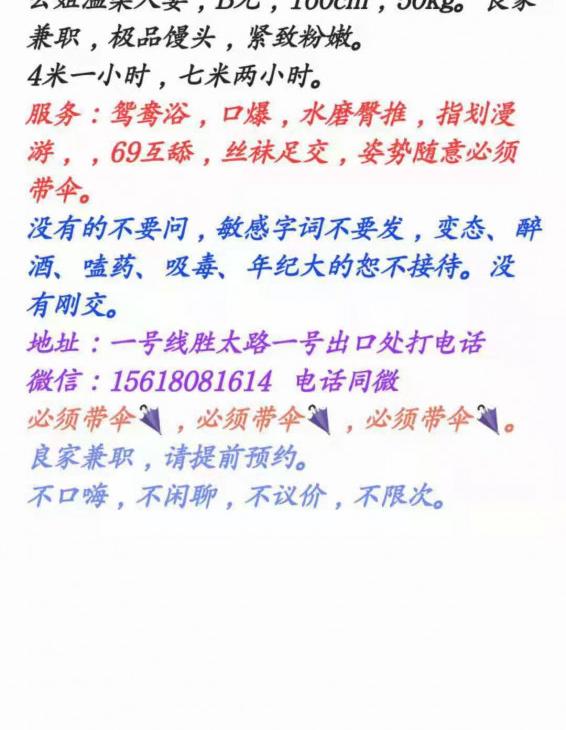 温柔人妻，160cm，50kg。良家
兼职，极品馒头，紧致粉嫩。
4米一小时，七米两小时。
服务：鸳鸯浴，口爆，水磨臀推，指划漫
游，，69互舔，丝袜足交，姿势随意必须
带伞。
没有的不要问，敏感字词不要发，变态、醉
酒、嗑药、吸毒、年纪大的恕不接待。没
有刚交。
地址：一号线胜太路一号出口处打电话
微信：15618081614 电话同微
必须带伞🌂，必须带伞🌂，必须带伞🌂。
良家兼职，请提前预约。
不口嗨，不闲聊，不议价，不限次。